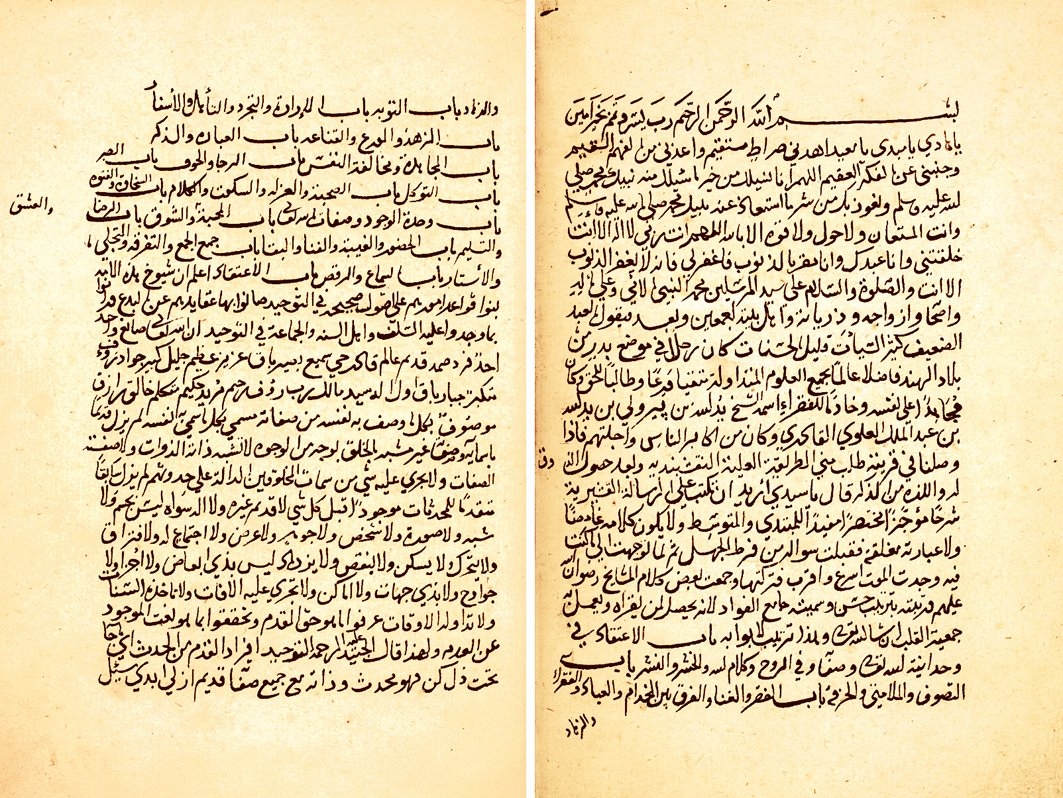 بسم الله الرحمن الرحيم رب يسر وتمم بخير امين
يا هادي يا مبدي يا معيد اهدني صراط مستقيم واعذني من الفهم السقيم
وجنبني عن الفكر العقيم اللهم انا نسئلك من خير ما سئلك منه نبيك محمد صلى
الله عليه وسلم ونعوذ بك من شر ما استعاذ عنه نبيك محمد صلى الله عليه وسلم
وانت المستعان ولا حول ولا قوة الا بالله اللهم انت ربي لا اله الا انت
خلقتني وانا عبدك وانا مقر بالذنوب فاغفر لي فانه لا يغفر الذنوب
الا انت والصلوة والسلام على سيد المرسلين محمد النبي الامي وعلى اله
واصحابه وازواجه وذرياته واهل بيته اجمعين وبعد فيقول العبد
الضعيف كثير السيات وقليل الحسنات كان رجل في موضع بدر من
بلاد الهند فاضلا عالما بجميع العلوم المتداولة متقيا ورعا وطالبا للحق وكان
مجاهدا على نفسه وخادما للفقراء اسمه الشيخ يد الله بن كبير ولي بن يد الله
بن عبد الملك العلوي القادري وكان من اكابر الناس واجلتهم فاذا
وصلنا في قريته طلب مني الطريقة العلية النقشبندية وبعد حصول
ذوق
له واللذة من الذكر قال يا سيدي اريد ان تكتب على الرسالة القشيرية
شرحا موجزا مختصرا مفيدا للمبتدي والمتوسط ولا يكون كلامه غامضا
ولا عبارته مغلقة فقبلت سواله من فرط الجهل ثم لما توجهت الى ما كنت
فيه وجدت الموت اسرع واقرب فتركتها وجمعت بعض كلام المشايخ رضوان الله
عليهم فرتبته بترتيب حسن وسميته جامع الفوائد لانه يحصل لمن يقراه ويعمل به
جمعية القلب ان شاء الله تعالى وهذا ترتيب ابوابه باب الاعتقاد في
وحدانية الله تعالى وصفاته وفي الروح وكلام الله والحشر والنشر باب
التصوف والملامتي والخرقة باب الفقر والغنا والفرق بين الخدام والعباد والفقراء
والزهاد
والزهاد باب التوبة باب الارادة والتجرد والتأهل والاسفار
باب الزهد والورع والقناعة باب العبادة والذكر
باب المجاهدة ومخالفة النفس باب الرجا والخوف باب الصبر
باب التوكل باب الصحبة والعزلة والسكوت والكلام باب السخاوة والفتوة
باب وحدة الوجود وصفات الله تعالى باب المحبة والشوق باب الرضا
والعشق
والتسليم باب الحضور والغيبة والفنا والبقا باب جمع الجمع والتفرقة والتجلي
والاستار باب السماع والرقص باب الاعتقاد اعلم ان شيوخ هذه الائمة
بنوا قواعد امورهم على اصول صحيحة في التوحيد صانوا بها عقايدهم عن البدع قد اتوا
بما وجدوا عليه السلف واهل السنة والجماعة في التوحيد ان الله تعالى صانع واحد
احد فرد صمد قديم عالم قادر حي سميع بصير باق عزيز عظيم جليل كبير جواد رؤف
متكبر جبار باق اول اله سيد مالك رب رؤف رحيم مريد حكيم متكلم خالق رازق
موصوف بكل ما وصف به نفسه من صفاته مسمى بكل ما سمى نفسه لم يزل قديما
باسمايه وصفاته غير شبه للخلق بوجه من الوجوه لا تشبه ذاته الذوات ولا صفته
الصفات ولا يجري عليه شي من سمات المخلوقين الدالة على حدوثهم لم يزل سابقا
متقدما للمحدثات موجودا قبل كل شي لا قديم غيره ولا اله سواه ليس بجسم ولا
شبه ولا صورة ولا شخص ولا جوهر ولا عرض ولا اجتماع له ولا افتراق
ولا يتحرك ولا يسكن ولا ينقص ولا يزداد ليس بذي ابعاض ولا اجزاء ولا
جوارح ولا بذي جهات ولا اماكن ولا تجري عليه الافات ولا تاخذه السنات
ولا تداوله الاوقات عرفوا ما هو حق القدم وتحققوا بما هو نعت الموجود
عن العدم ولهذا قال الجنيد عليه الرحمة التوحيد افراد القدم من الحدث اي ما جا
تحت ذل كن فهو محدث وذاته مع جميع صفاته قديم ازلي ابدي سئل